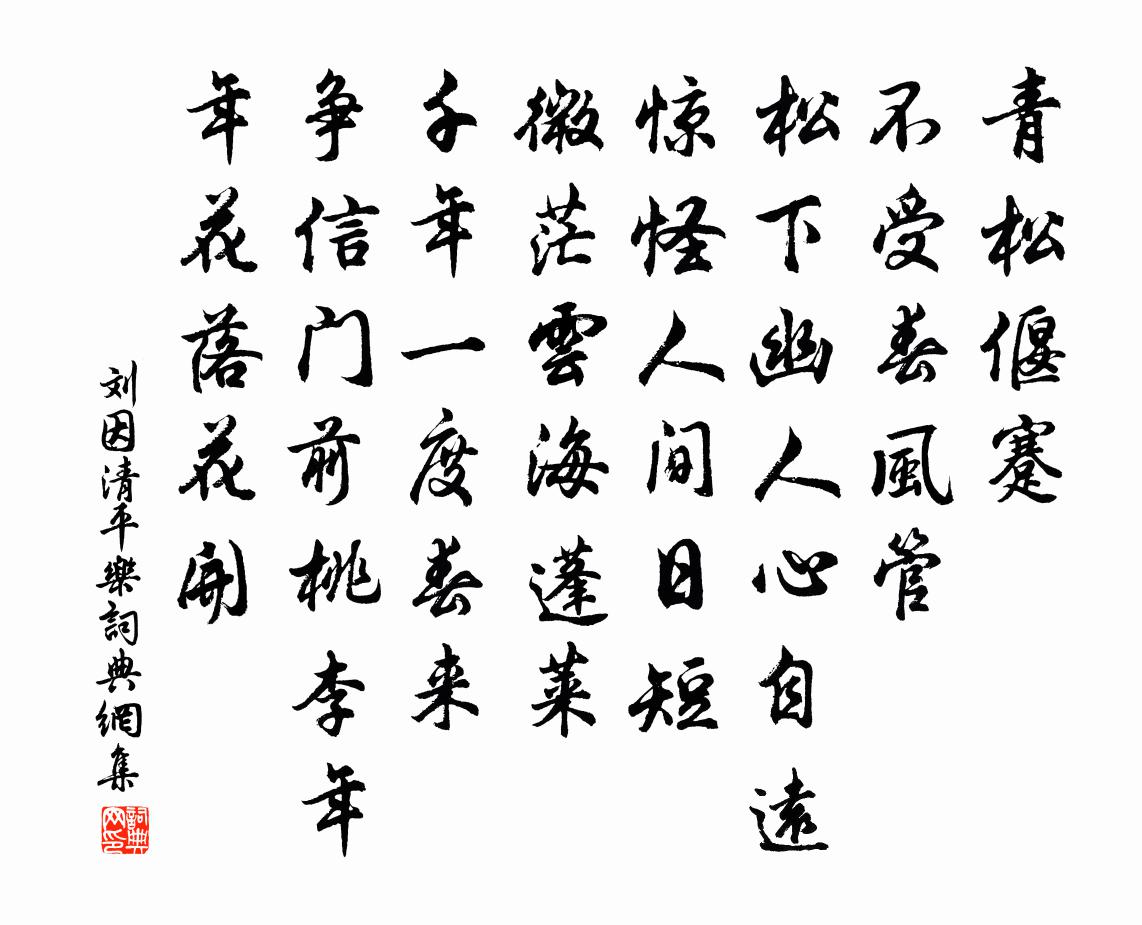 青松偃蹇
不受春風管
松下幽人心自遠
惊怪人间日短
微茫雲海蓬莱
千年一度春来
争信门前桃李年
年花落花開
刘因清平樂詞典網集
詞典网印